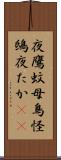 夜鷹蚊母鳥怪
鴟夜たか((